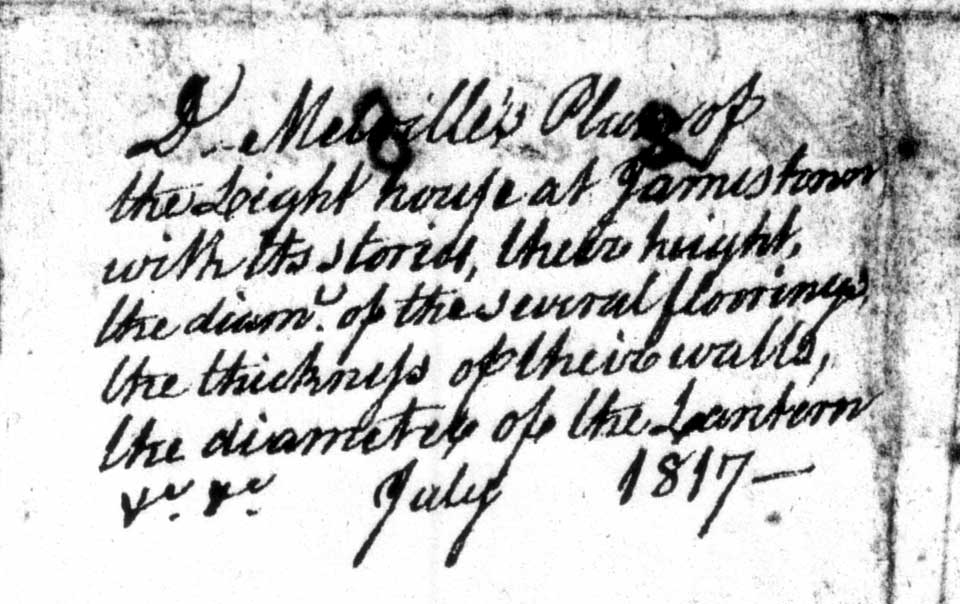 D. Melville's Plan of
the Light house at Jamestown
with its stories, their height,
the diamr. of the several floorings,
the thickness of their walls,
the diameter of the Lantern
&c. &c. July 1817—